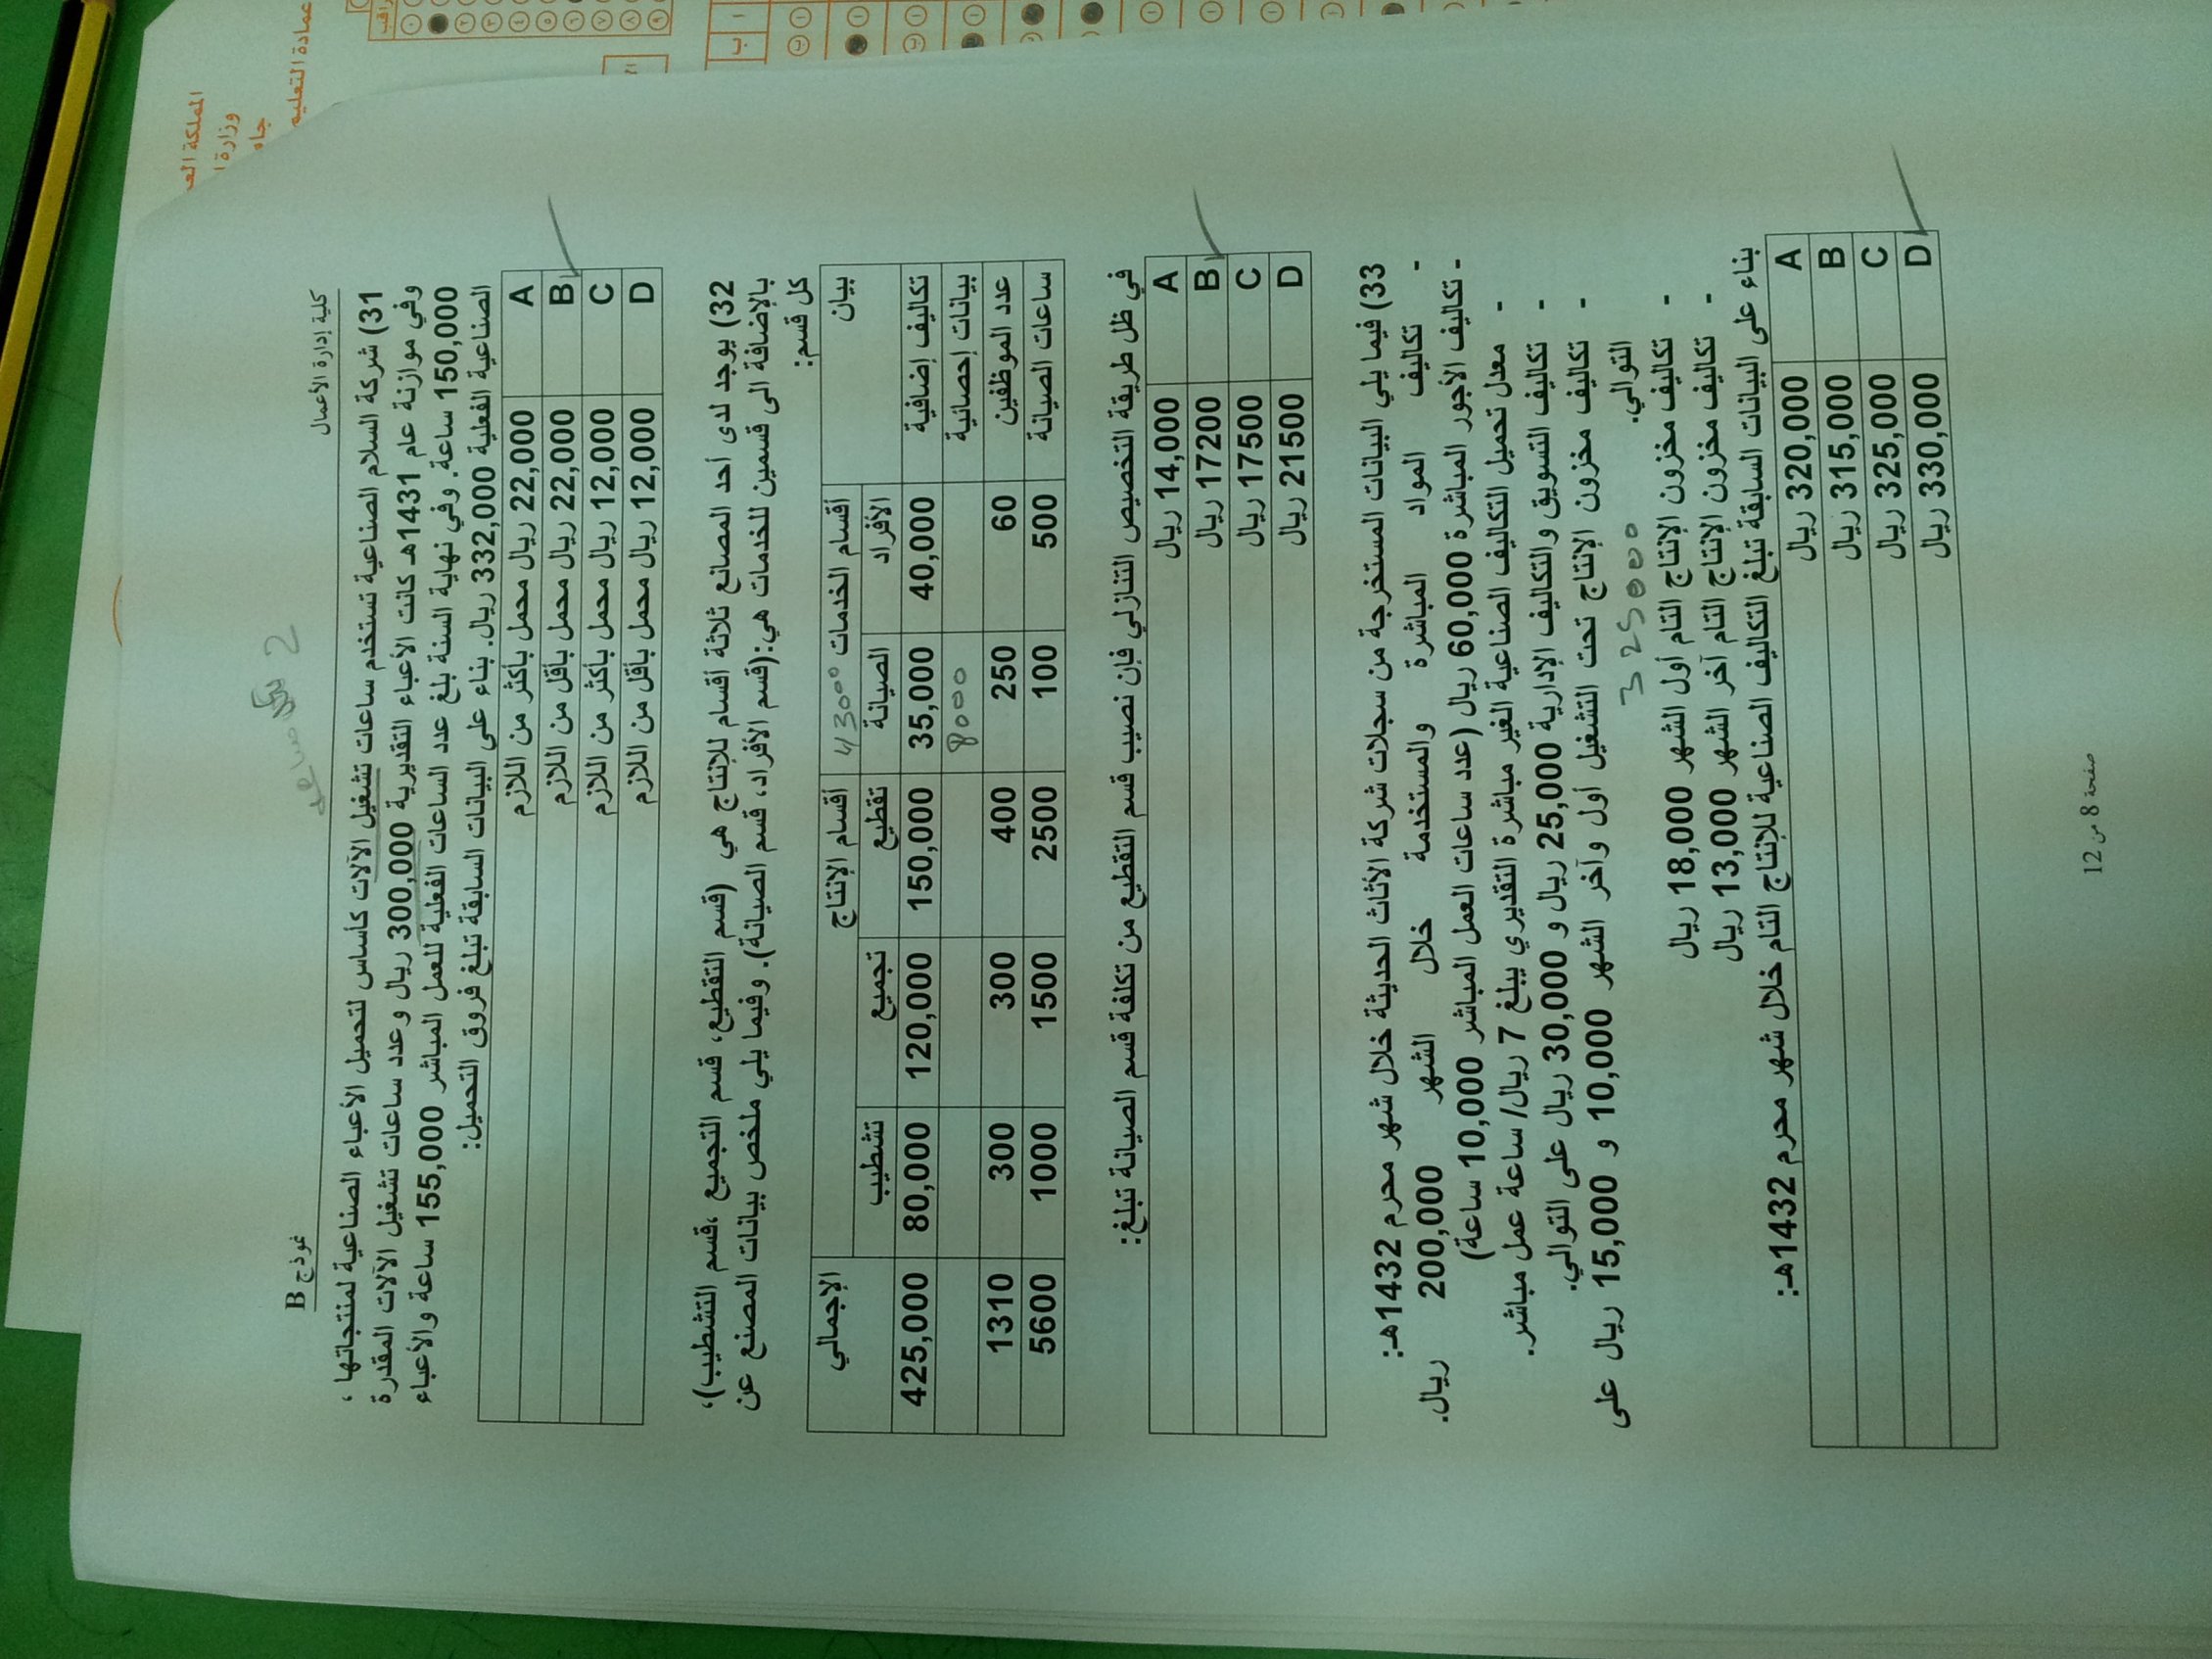 المملكة العـ
وزارة ا
جاه
عمادة التعليم
نموذج B
كلية إدارة الأعمال
2
31) شركة السلام الصناعية تستخدم ساعات تشغيل الآلات كأساس لتحميل الأعباء الصناعية لمنتجاتها ،
وفي موازنة عام 1431هـ كانت الأعباء التقديرية 300,000 ريال وعدد ساعات تشغيل الآلات المقدرة
150,000 ساعة. وفي نهاية السنة بلغ عدد الساعات الفعلية للعمل المباشر 155,000 ساعة والأعباء
الصناعية الفعلية 332,000 ريال. بناء على البيانات السابقة تبلغ فروق التحميل:
A 22,000 ريال محمل بأكثر من اللازم
B 22,000 ريال محمل بأقل من اللازم
C 12,000 ريال محمل بأكثر من اللازم
D 12,000 ريال محمل بأقل من اللازم
32) يوجد لدى أحد المصانع ثلاثة أقسام للإنتاج هي (قسم التقطيع، قسم التجميع ،قسم التشطيب)،
بالإضافة الى قسمين للخدمات هي:(قسم الأفراد، قسم الصيانة). وفيما يلي ملخص بيانات المصنع عن
كل قسم:
بيان أقسام الخدمات 43000 أقسام الإنتاج الإجمالي
الأفراد الصيانة تقطيع تجميع تشطيب
تكاليف إضافية 40,000 35,000 150,000 120,000 80,000 425,000
بيانات إحصائية 8000
عدد الموظفين 60 250 400 300 300 1310
ساعات الصيانة 500 100 2500 1500 1000 5600
في ظل طريقة التخصيص التنازلي فإن نصيب قسم التقطيع من تكلفة قسم الصيانة تبلغ:
A 14,000 ريال
B 17200 ريال
C 17500 ريال
D 21500 ريال
33) فيما يلي البيانات المستخرجة من سجلات شركة الأثاث الحديثة خلال شهر محرم 1432هـ:
- تكاليف المواد المباشرة والمستخدمة خلال الشهر 200,000 ريال.
- تكاليف الأجور المباشرة 60,000 ريال (عدد ساعات العمل المباشر 10,000 ساعة)
- معدل تحميل التكاليف الصناعية الغير مباشرة التقديري يبلغ 7 ريال/ ساعة عمل مباشر.
- تكاليف التسويق والتكاليف الإدارية 25,000 ريال و 30,000 ريال على التوالي.
- تكاليف مخزون الإنتاج تحت التشغيل أول وآخر الشهر 10,000 و 15,000 ريال على
التوالي.
325000
- تكاليف مخزون الإنتاج التام أول الشهر 18,000 ريال
- تكاليف مخزون الإنتاج التام آخر الشهر 13,000 ريال
بناء على البيانات السابقة تبلغ التكاليف الصناعية للإنتاج التام خلال شهر محرم 1432هـ:
A 320,000 ريال
B 315,000 ريال
C 325,000 ريال
D 330,000 ريال
صفحة 8 من 12